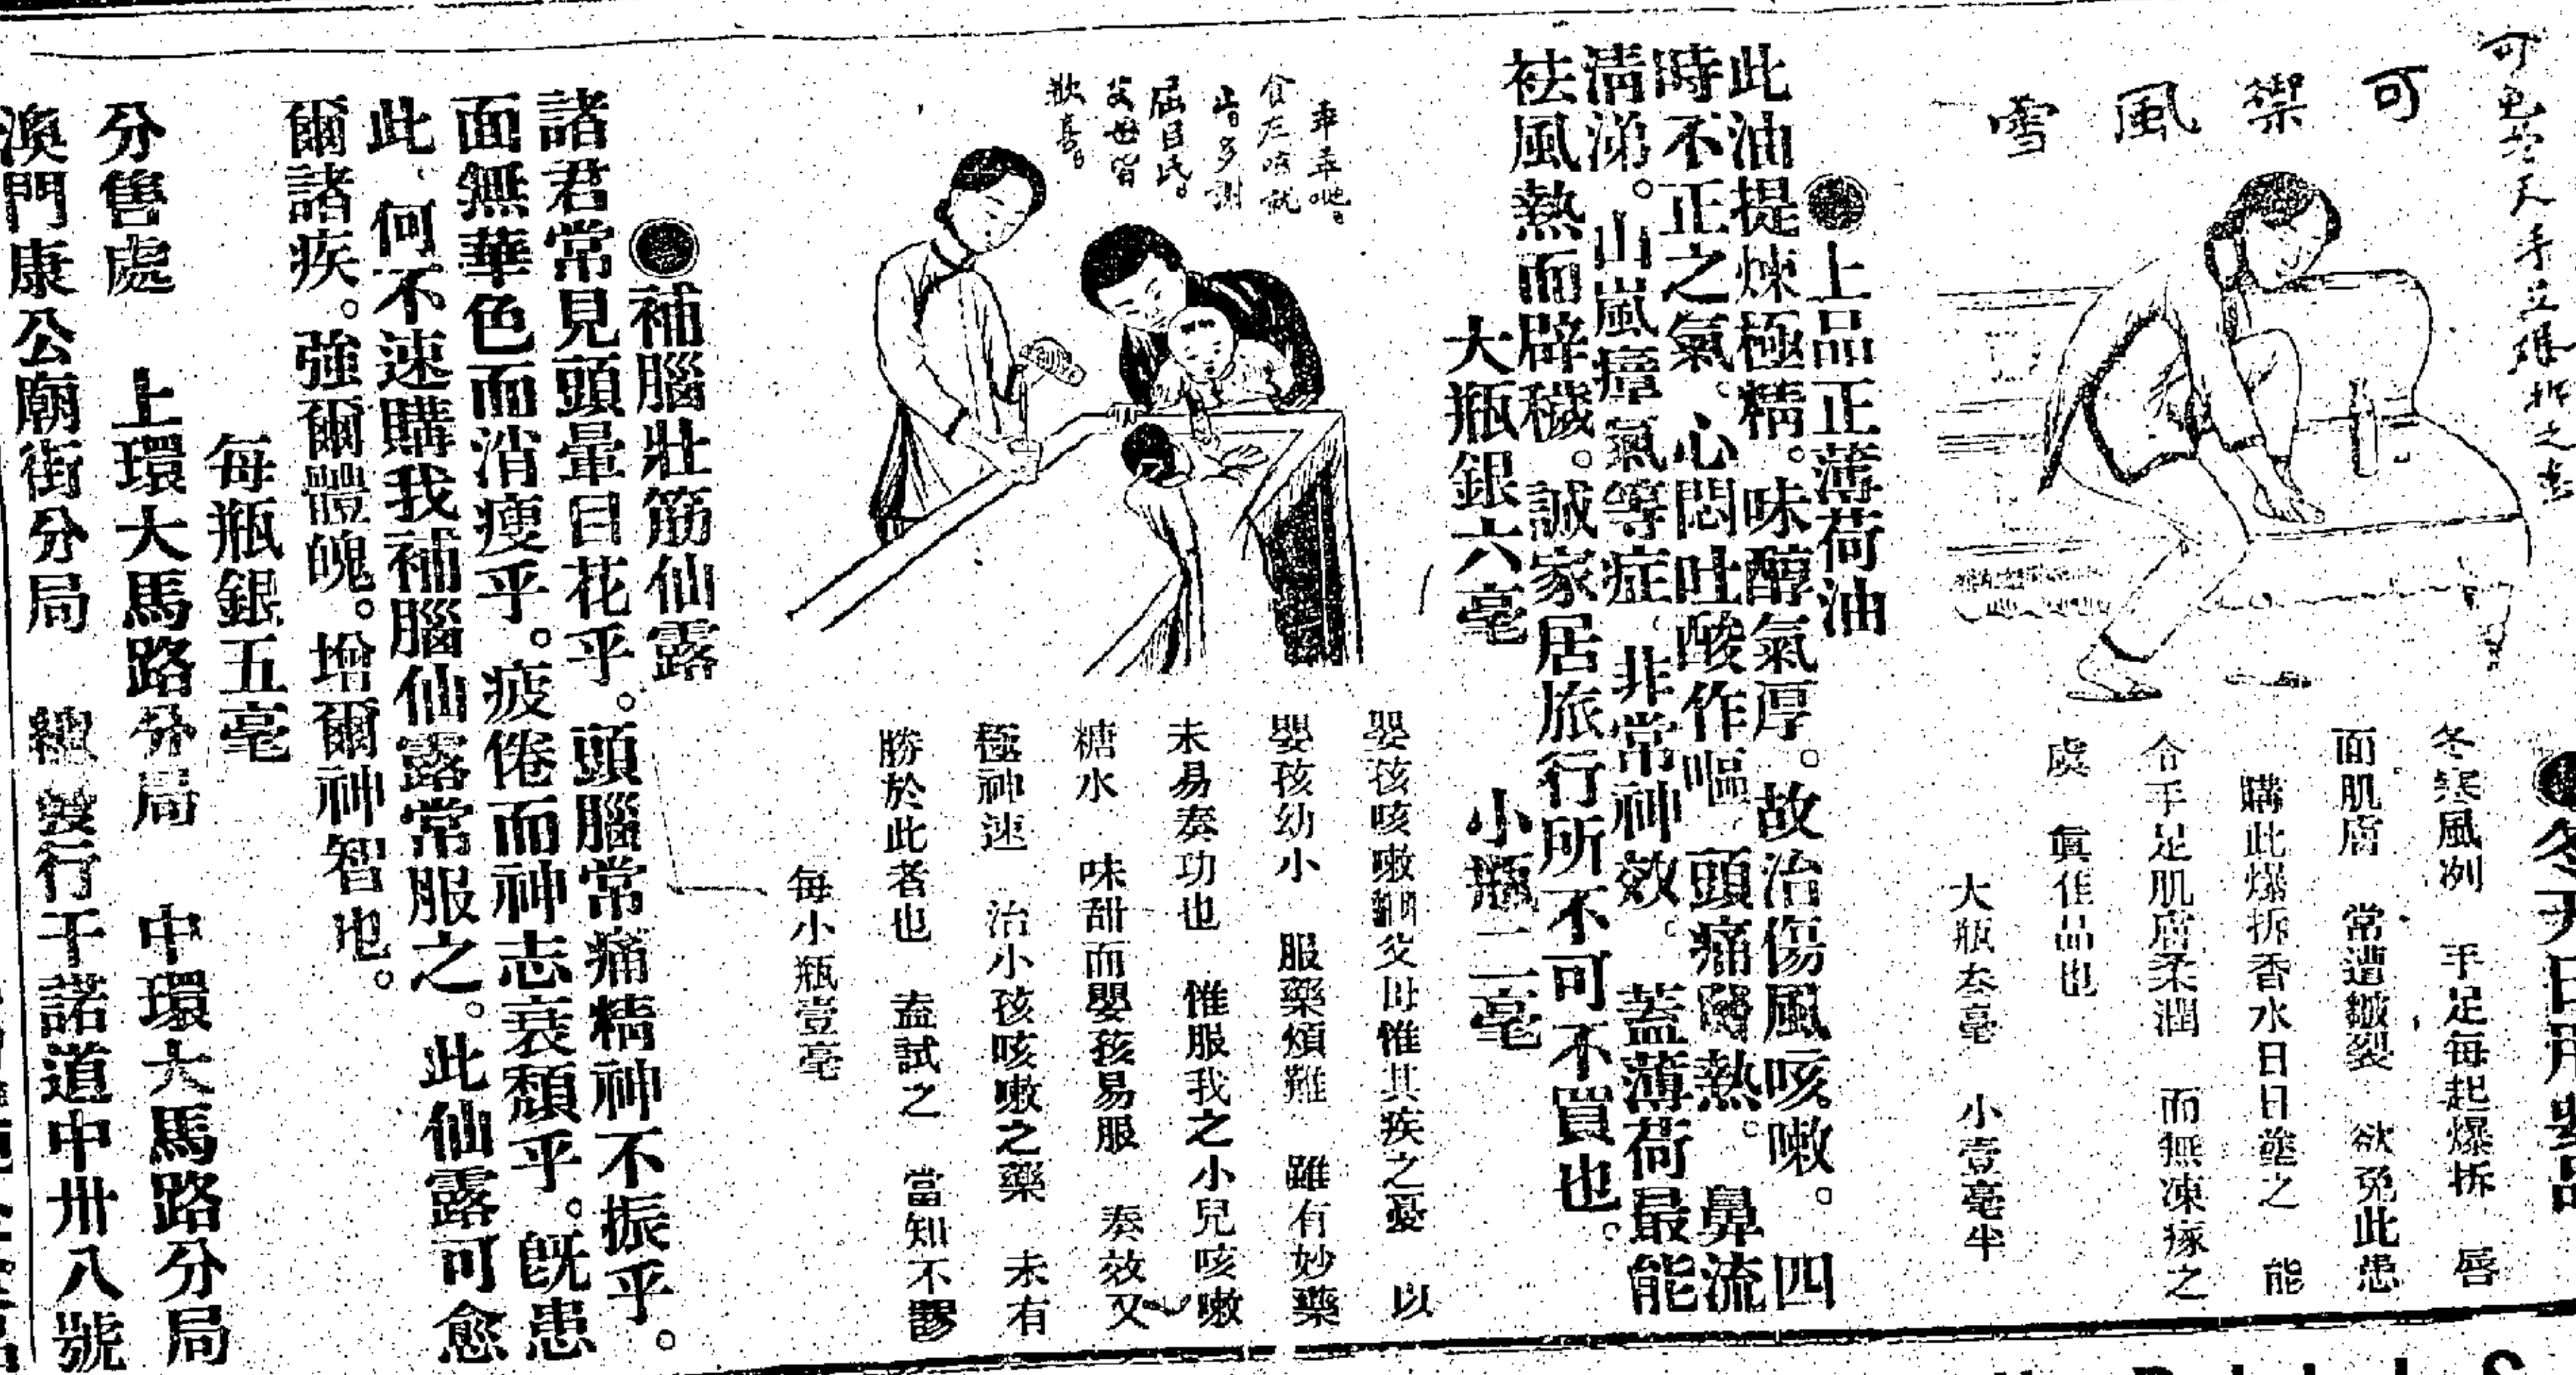 可禦風雪
冬寒風冽　手足每起爆拆　唇
面肌膚　常遭皺裂　欲免此患
購此爆拆香水日日塗之　能
令手足肌膚柔潤　而無凍瘃之
處　眞佳品也
大瓶叁毫　小壹毫半
上品正薄荷油
此油提煉極精。味醇氣厚。故治傷風咳嗽。四
時不正之氣。心悶吐酸作嘔　頭痛　熱。鼻流
淸涕。山嵐瘴氣等症　非常神效。蓋薄荷最能
袪風熱而辟穢。誠家居旅行所不可不買也。
大瓶銀六毫　小瓶二毫
乖乖
食左咳就
多謝
屈臣氏。
父母皆
歡喜。
嬰孩咳嗽　父母惟其疾之憂　以
嬰孩幼小　服藥煩難　雖有妙藥
未易奏功也　惟服我之小兒咳嗽
糖水　味甜而嬰孩易服　奏效又
極神速　治小孩咳嗽之藥　未有
勝於此者也　盍試之　當知不謬
每小瓶壹毫
補腦壯筋仙露
諸君常見頭暈目花乎。頭腦常痛精神不振乎。
面無華色而消瘦乎。疲倦而神志衰頹乎。旣患
此　何不速購我補腦仙露常服之。此仙露可愈
爾諸疾。強爾體魄。增爾神智也。
每瓶銀五毫
分售處　上環大馬路分局　中環大馬路分局
澳門康公廟街分局　總發行干諾道中卅八號